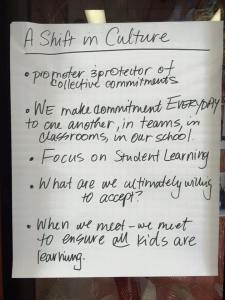 A Shift in Culture
• promoter & protector of
collective commitments
• WE make commitment EVERYDAY
to one another, in teams, in
classrooms, in our school.
• Focus on Student Learning
• What are we ultimately willing
to accept?
• When we meet - we meet
to ensure all kids are
learning.